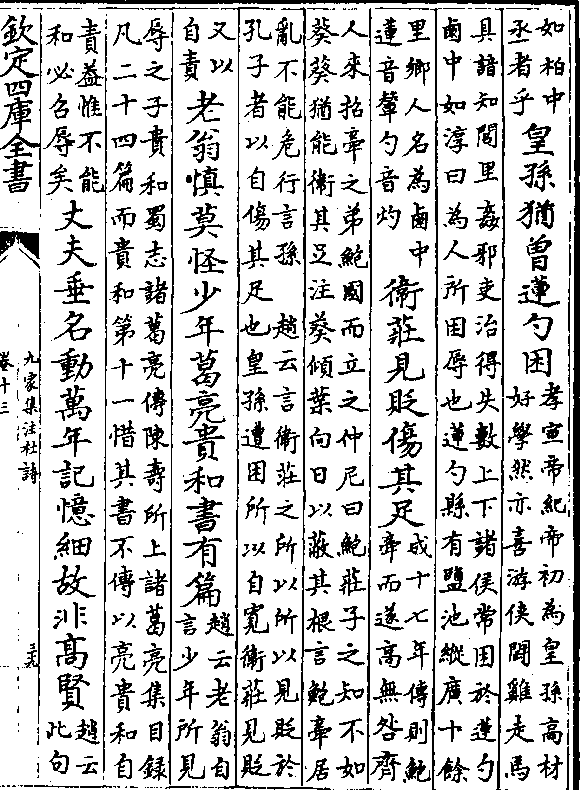 如柏中
丞者乎
皇孫猶曾蓮勺困
孝宣帝紀帝初為皇孫高材
好學然亦喜游俠鬬雞走馬
具諳知閭里姦邪吏治得失數上下諸侯常困於蓮勺
鹵中如淳曰為人所困辱也蓮勺縣有鹽池縱廣十餘
里鄉人名為鹵中
蓮音輦勺音灼
衛莊見貶傷其足
成十七年傳則鮑
牽而遂高無咎齊
人來招牽之弟鮑國而立之仲尼曰鮑莊子之知不如
葵葵猶能衛其足注葵傾葉向日以蔽其根言鮑牽居
亂不能危行言孫 趙云言衛莊之所以所以見貶於
孔子者以自傷其足也皇孫遭困所以自寬衛莊見貶
又以
自責
老翁慎莫怪少年葛亮貴和書有篇
趙云老翁自
言少年所見
辱之子貴和蜀志諸葛亮傳陳壽所上諸葛亮集目錄
凡二十四篇而貴和第十一惜其書不傳以亮貴和自
責葢惟不能
和必召辱矣
丈夫垂名動萬年記憶細故非高賢
趙云
此句
欽定四庫全書
九家集注杜詩
卷十三
三九